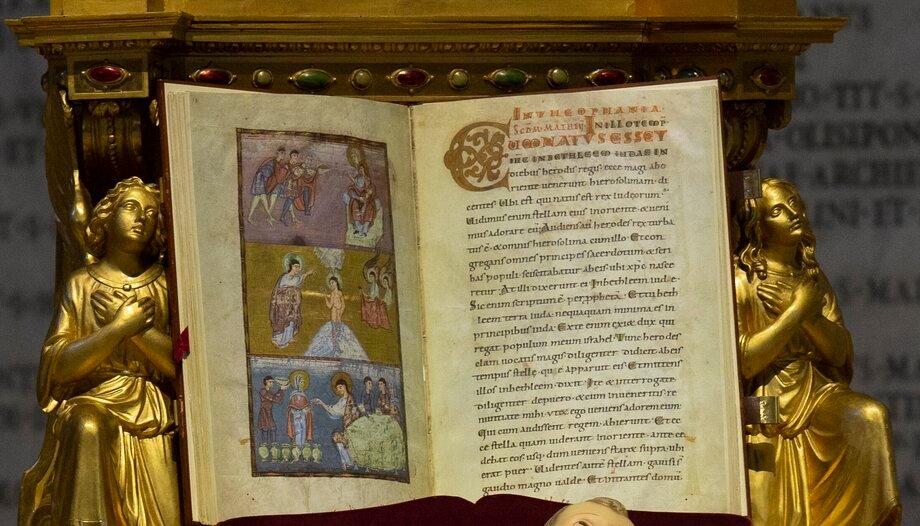 IN THEOPHANIA·
SCDM·MATHĒ· IN ILLO TEMP̄·
CUM NATUS ESSET
IHC IN BETHLEEM IUDAE IN
diebus herodis regis· ecce magi abo
riente uenerunt hierosolimam· di
centes· Ubi est qui natus est rex iudeorum·
Uidimus enim stellam eius in oriente· & ueni
mus adorare eū· Audiens aū herodes rex turba
tus ē· & omnis hierosolima cum illo· Et con
gregans omnes principes sacerdotum & scri
bas populi· sciscitabatur ab eis· ubi xp̄c nasce
retur· At illi dixerunt ei· In bethleem iudę·
Sic enim scriptum ē· per pphetā· Et tu beth
leem terra iuda· nequaquam minima es in
principibus iuda· Ex te enim exi& dux qui
regat populum meum israhel· Tunc herodes
clam uocatis magis diligenter didicit ab eis
tempus stellę· quę apparuit eis· Et mittens
illos in bethleem· dixit· Ite & interrogate
diligenter de puero· & cum inueneritis re
nuntiate mihi· ut & ego ueniens adorem eum·
Qui cum audissent regem· abierunt· Et ec
ce stella quam uiderant in oriente· ante ce
debat eos· usq; dum ueniens staret supra· ubi
erat puer· Uidentes autē stellam· gauisi s̄
gaudio magno ualde· Et intrantes domū